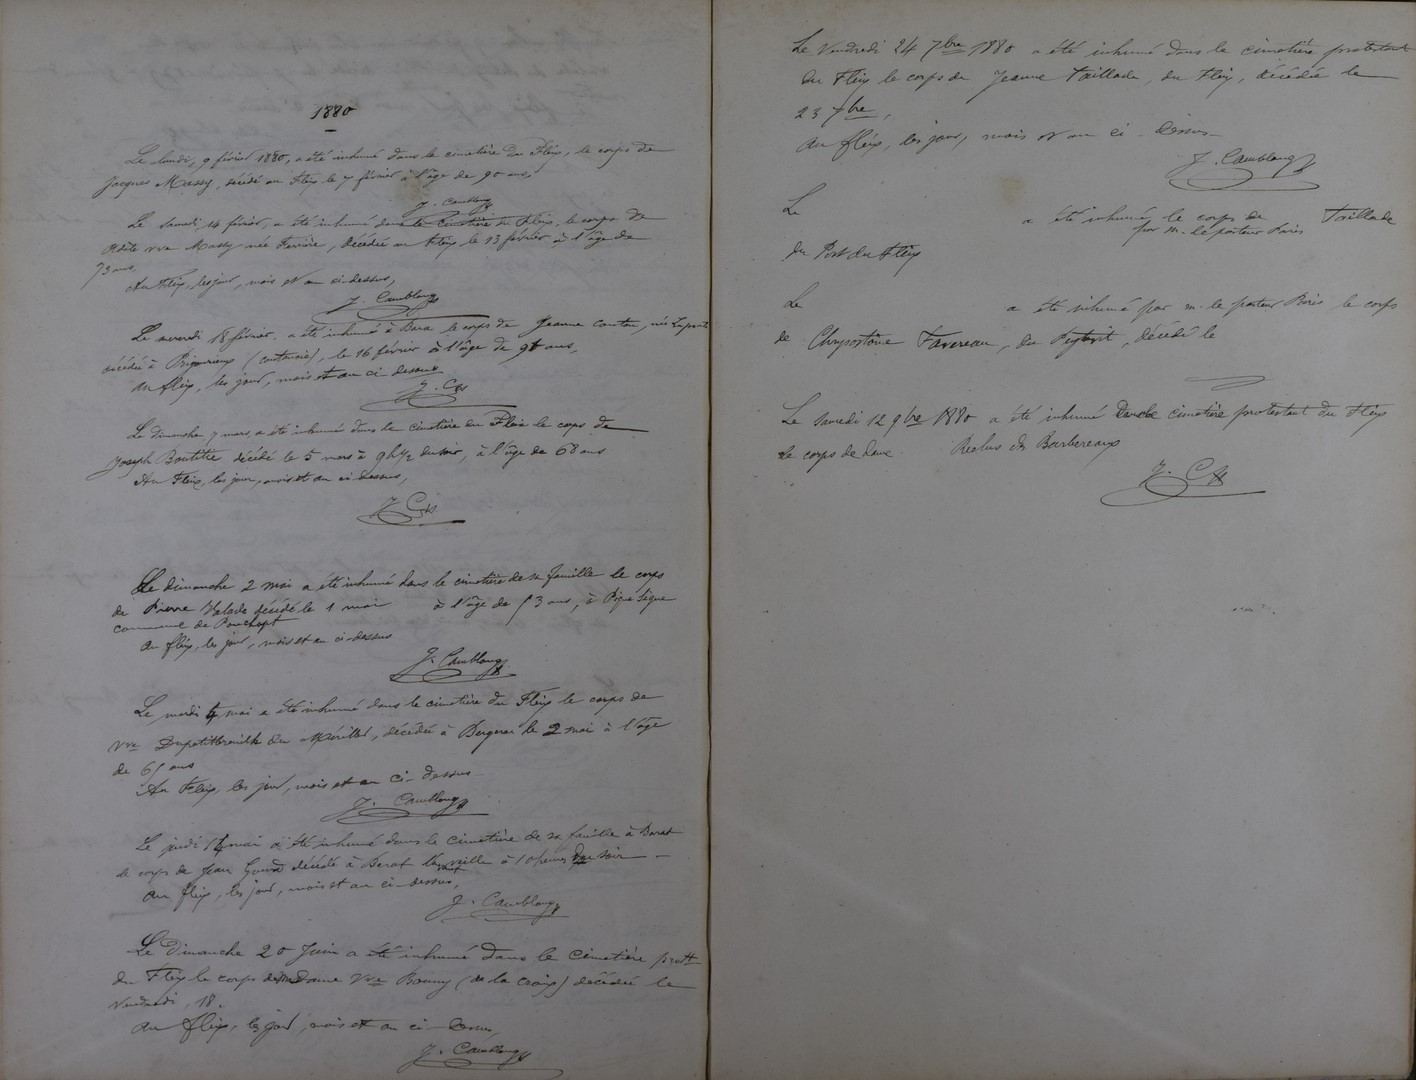 1880
Le lundi, 9 février 1880, a été inhumé dans le cimetière du Fleix, le corps de
Jacques Massy, décédé au Fleix le 7 février à l'âge de 90 ans,
J. Cambloug
Le samedi 14 février, a été inhumé dans le cimetière du Fleix, le corps de
Odète vve Massy née Ferrière, décédée au Fleix, le 13 février à l'âge de
73 ans,
Au Fleix, les jour, mois et an ci-dessus,
J. Cambloug
Le mercredi 18 février, a été inhumé à le corps de Jeanne née
décédée à le 16 février à l'âge de ans,
au fleix, les jour, mois et an ci-dessus
J. C
Le dimanche 7 mars, a été inhumé dans le cimetière du Fleix le corps de
Joseph décédé le 5 mars à 9h ½ du soir, à l'âge de 68 ans
Au Fleix, les jour, mois et an ci-dessus,
J. C
Le dimanche 2 mai a été inhumé dans le cimetière de sa famille le corps
de Pierre Valade décédé le 1 mai à l'âge de 53 ans, à Pique Sègue
commune de Ponchapt
au fleix, les jour, mois et an ci-dessus
J. Cambloug
Le mardi 4 mai a été inhumé dans le cimetière du Fleix le corps de
vve du Mérillet, décédée à Bergerac le 2 mai à l'âge
de 65 ans
Au Fleix, les jour, mois et an ci-dessus
J. Cambloug
Le jeudi mai a été inhumé dans le cimetière de sa famille à Barat
le corps de Jean décédé à Barat la veille à 10 heures du soir
au fleix, les jour, mois et an ci-dessus,
J. Cambloug
Le Dimanche 20 Juin a été inhumé dans le cimetière prott
du Fleix le corps de Madame Vve (de la croix) décédée le
Vendredi, 18.
au fleix, les jour, mois et an ci-dessus,
J. Cambloug
Le Vendredi 24 7bre 1880 a été inhumé dans le cimetière protestant
du Fleix le corps de Jeanne Taillade, du Fleix, décédée le
23 7bre,
au fleix, les jour, mois et an ci-dessus
J. Cambloug
Le a été inhumé, le corps de Taillade
par m. le pasteur Paris
du Port du Fleix
Le a été inhumé par m. le pasteur Paris le corps
de Chrysostôme Favereau, du décédé le
Le samedi 12 9bre 1880 a été inhumé dans le cimetière protestant du Fleix
le corps de Reclus de Barbereaux
J. C